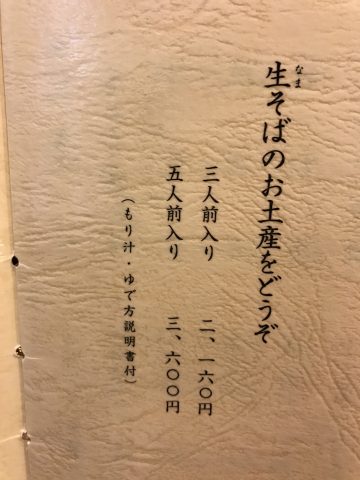 生そばのお土産をどうぞ
なま
三人前入り 二、一六〇円
五人前入り 三、六〇〇円
（もり汁・ゆで方説明書付）